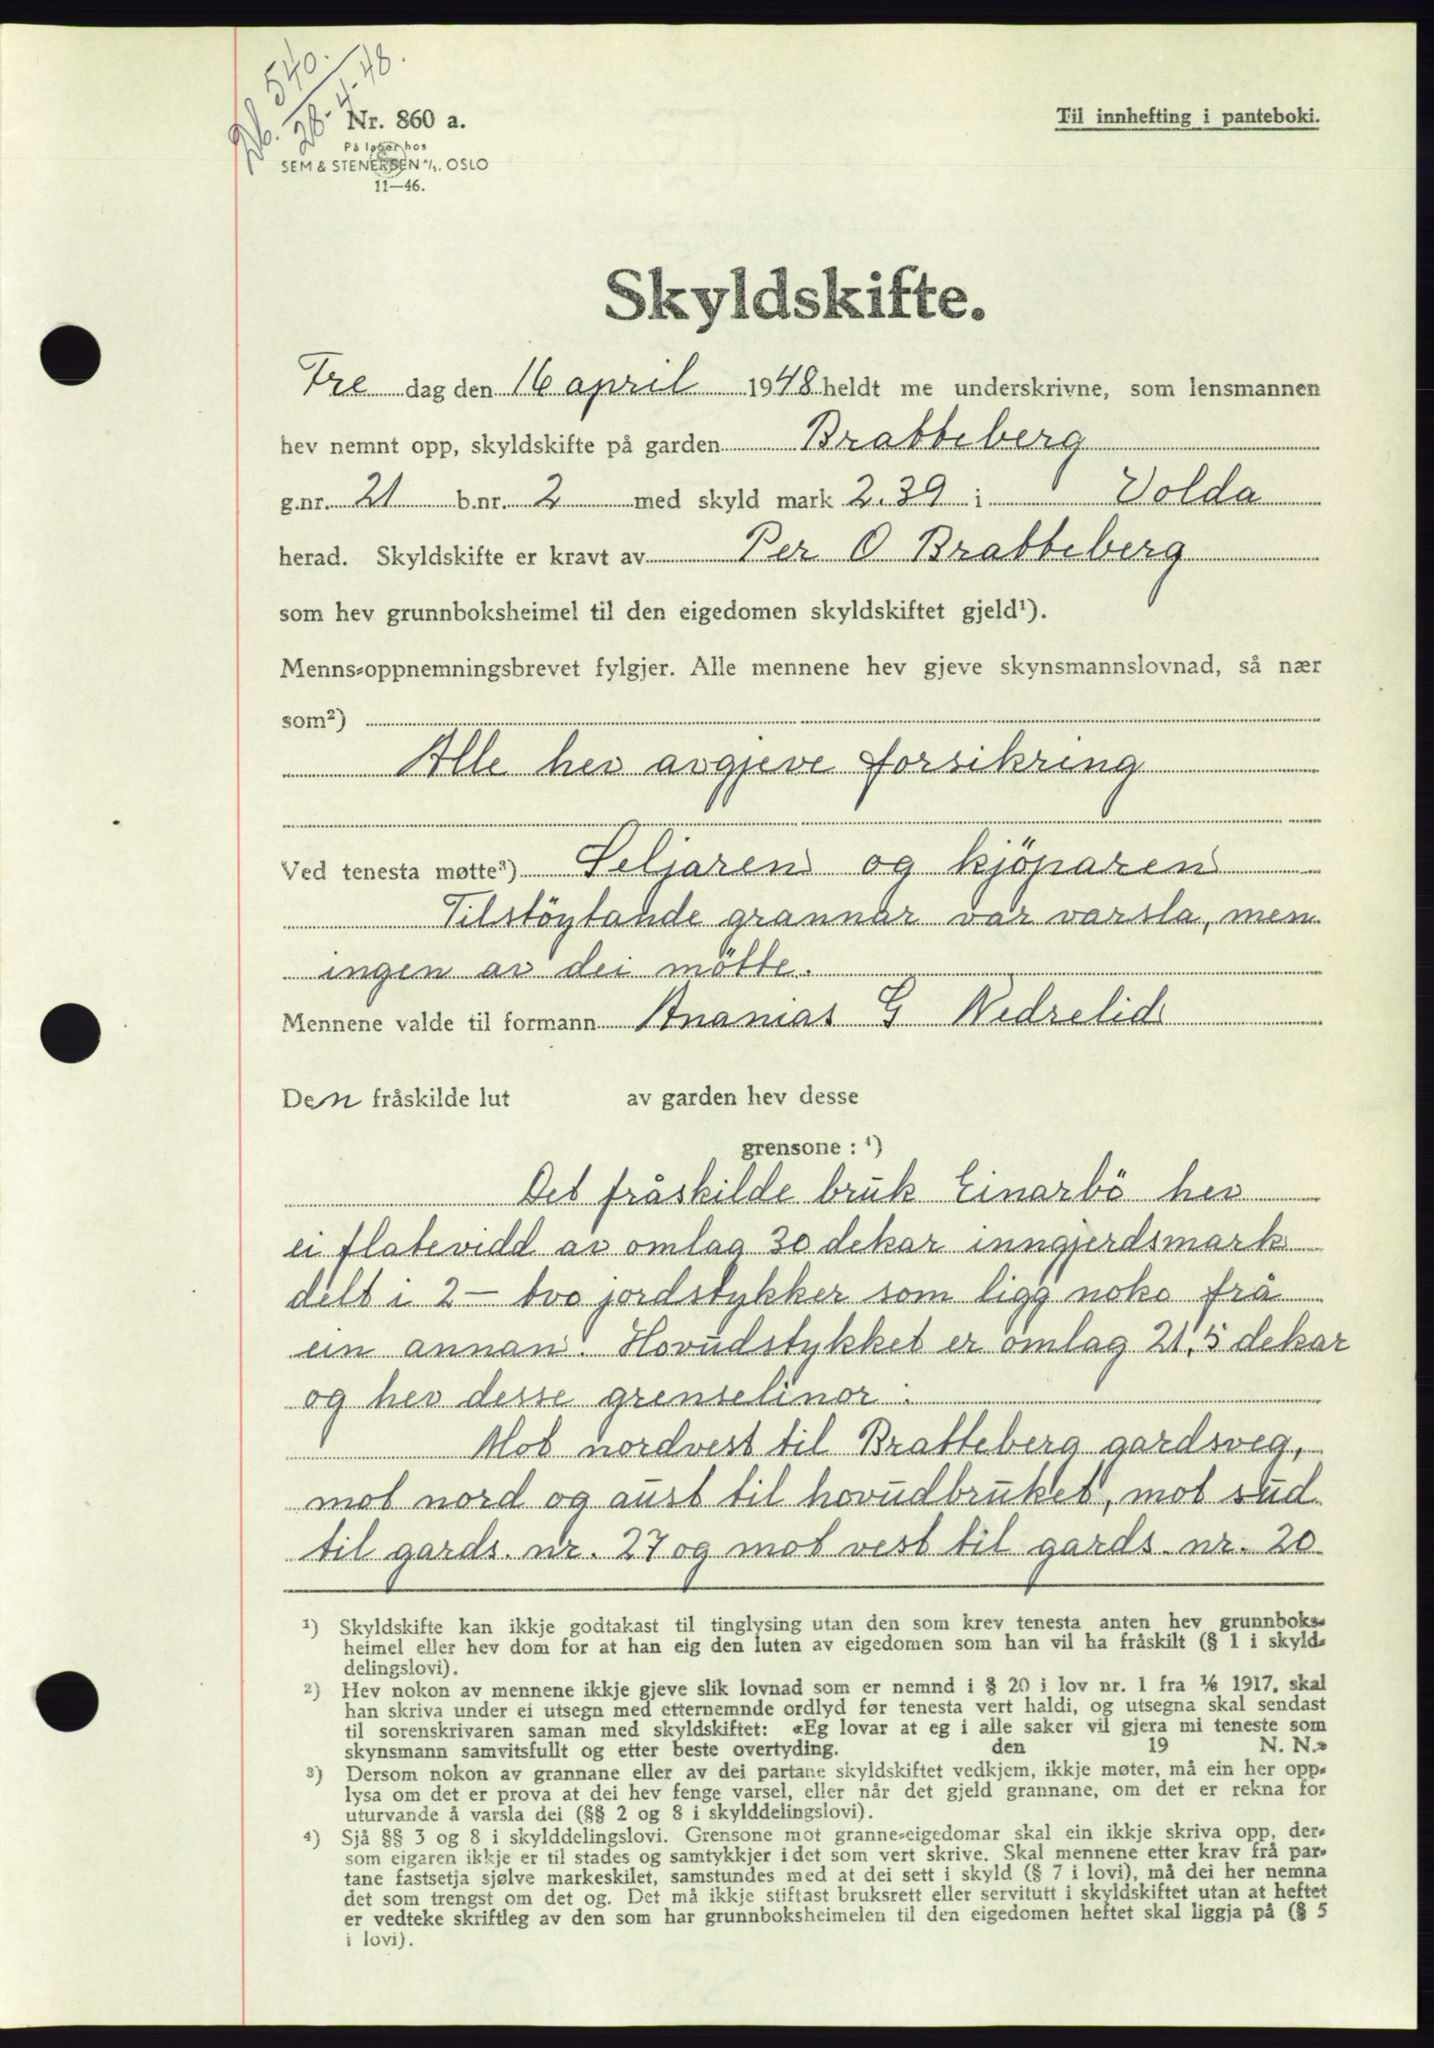 Db. 540.
28-4-48.
Nr. 860 a.
På lager hos
SEM & STENERSEN A/S. OSLO
11—46.
Til innhefting i panteboki.
Skyldskifte.
Fre dag den 16 april 1948 heldt me underskrivne, som lensmannen
hev nemnt opp, skyldskifte på garden Bratteberg
g.nr. 21 b.nr. 2 med skyld mark 2.39 i Volda
herad. Skyldskifte er kravt av Per O Bratteberg
som hev grunnboksheimel til den eigedomen skyldskiftet gjeld¹).
Menns-oppnemningsbrevet fylgjer. Alle mennene hev gjeve skynsmannslovnad, så nær
som²)
Alle hev avgjeve forsikring
Ved tenesta møtte³) Seljaren og kjöparen
Tilstöytande grannar var varsla, men
ingen av dei mötte.
Mennene valde til formann Ananias G Nedrelid
Den fråskilde lut av garden hev desse
grensone : ⁴)
Det fråskilde bruk Einarbö hev
ei flatevidd av omlag 30 dekar inngjerdsmark
delt i 2 — tvo jordstykker som ligg noko frå
ein annan. Hovudstykket er omlag 21,5 dekar
og hev desse grenselinor :
Mot nordvest til Bratteberg gardsveg,
mot nord og aust til hovudbruket, mot sud
til gards. nr. 27 og mot vest til gards. nr. 20
¹) Skyldskifte kan ikkje godtakast til tinglysing utan den som krev tenesta anten hev grunnboks-
heimel eller hev dom for at han eig den luten av eigedomen som han vil ha fråskilt (§ 1 i skyld-
delingslovi).
²) Hev nokon av mennene ikkje gjeve slik lovnad som er nemnd i § 20 i lov nr. 1 fra ¹/₆ 1917, skal
han skriva under ei utsegn med etternemnde ordlyd før tenesta vert haldi, og utsegna skal sendast
til sorenskrivaren saman med skyldskiftet: «Eg lovar at eg i alle saker vil gjera mi teneste som
skynsmann samvitsfullt og etter beste overtyding. den 19 N. N.»
³) Dersom nokon av grannane eller av dei partane skyldskiftet vedkjem, ikkje møter, må ein her opp-
lysa om det er prova at dei hev fenge varsel, eller når det gjeld grannane, om det er rekna for
uturvande å varsla dei (§§ 2 og 8 i skylddelingslovi).
⁴) Sjå §§ 3 og 8 i skylddelingslovi. Grensone mot granne-eigedomar skal ein ikkje skriva opp, der-
som eigaren ikkje er til stades og samtykkjer i det som vert skrive. Skal mennene etter krav frå par-
tane fastsetja sjølve markeskilet, samstundes med at dei sett i skyld (§ 7 i lovi), må dei her nemna
det som trengst om det og. Det må ikkje stiftast bruksrett eller servitutt i skyldskiftet utan at heftet
er vedteke skriftleg av den som har grunnboksheimelen til den eigedomen heftet skal liggja på (§ 5
i lovi).